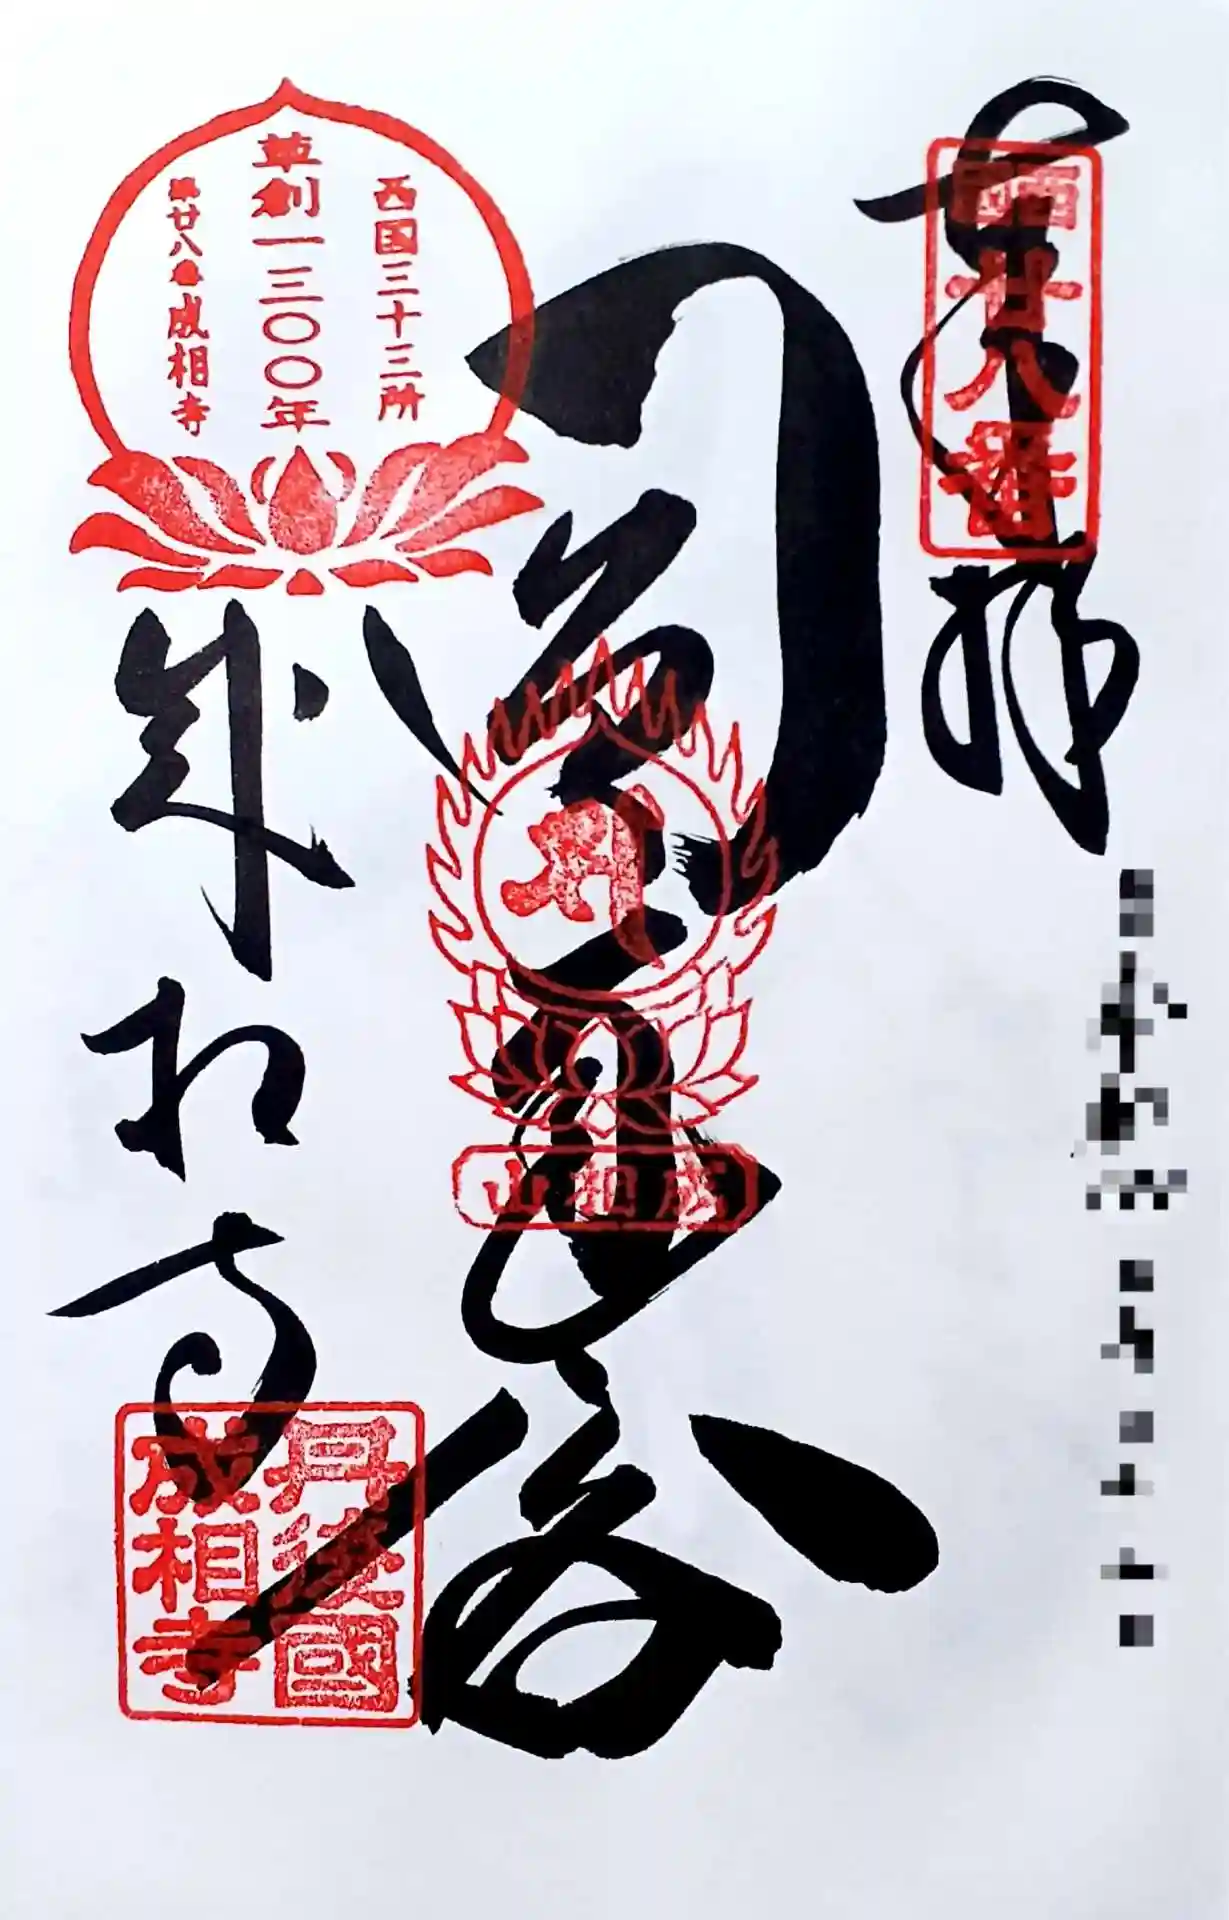 奉拝
西廿八番
西国三十三所
草創一三〇〇年
第廿八番成相寺
成相山
成相寺
丹後國
成相寺